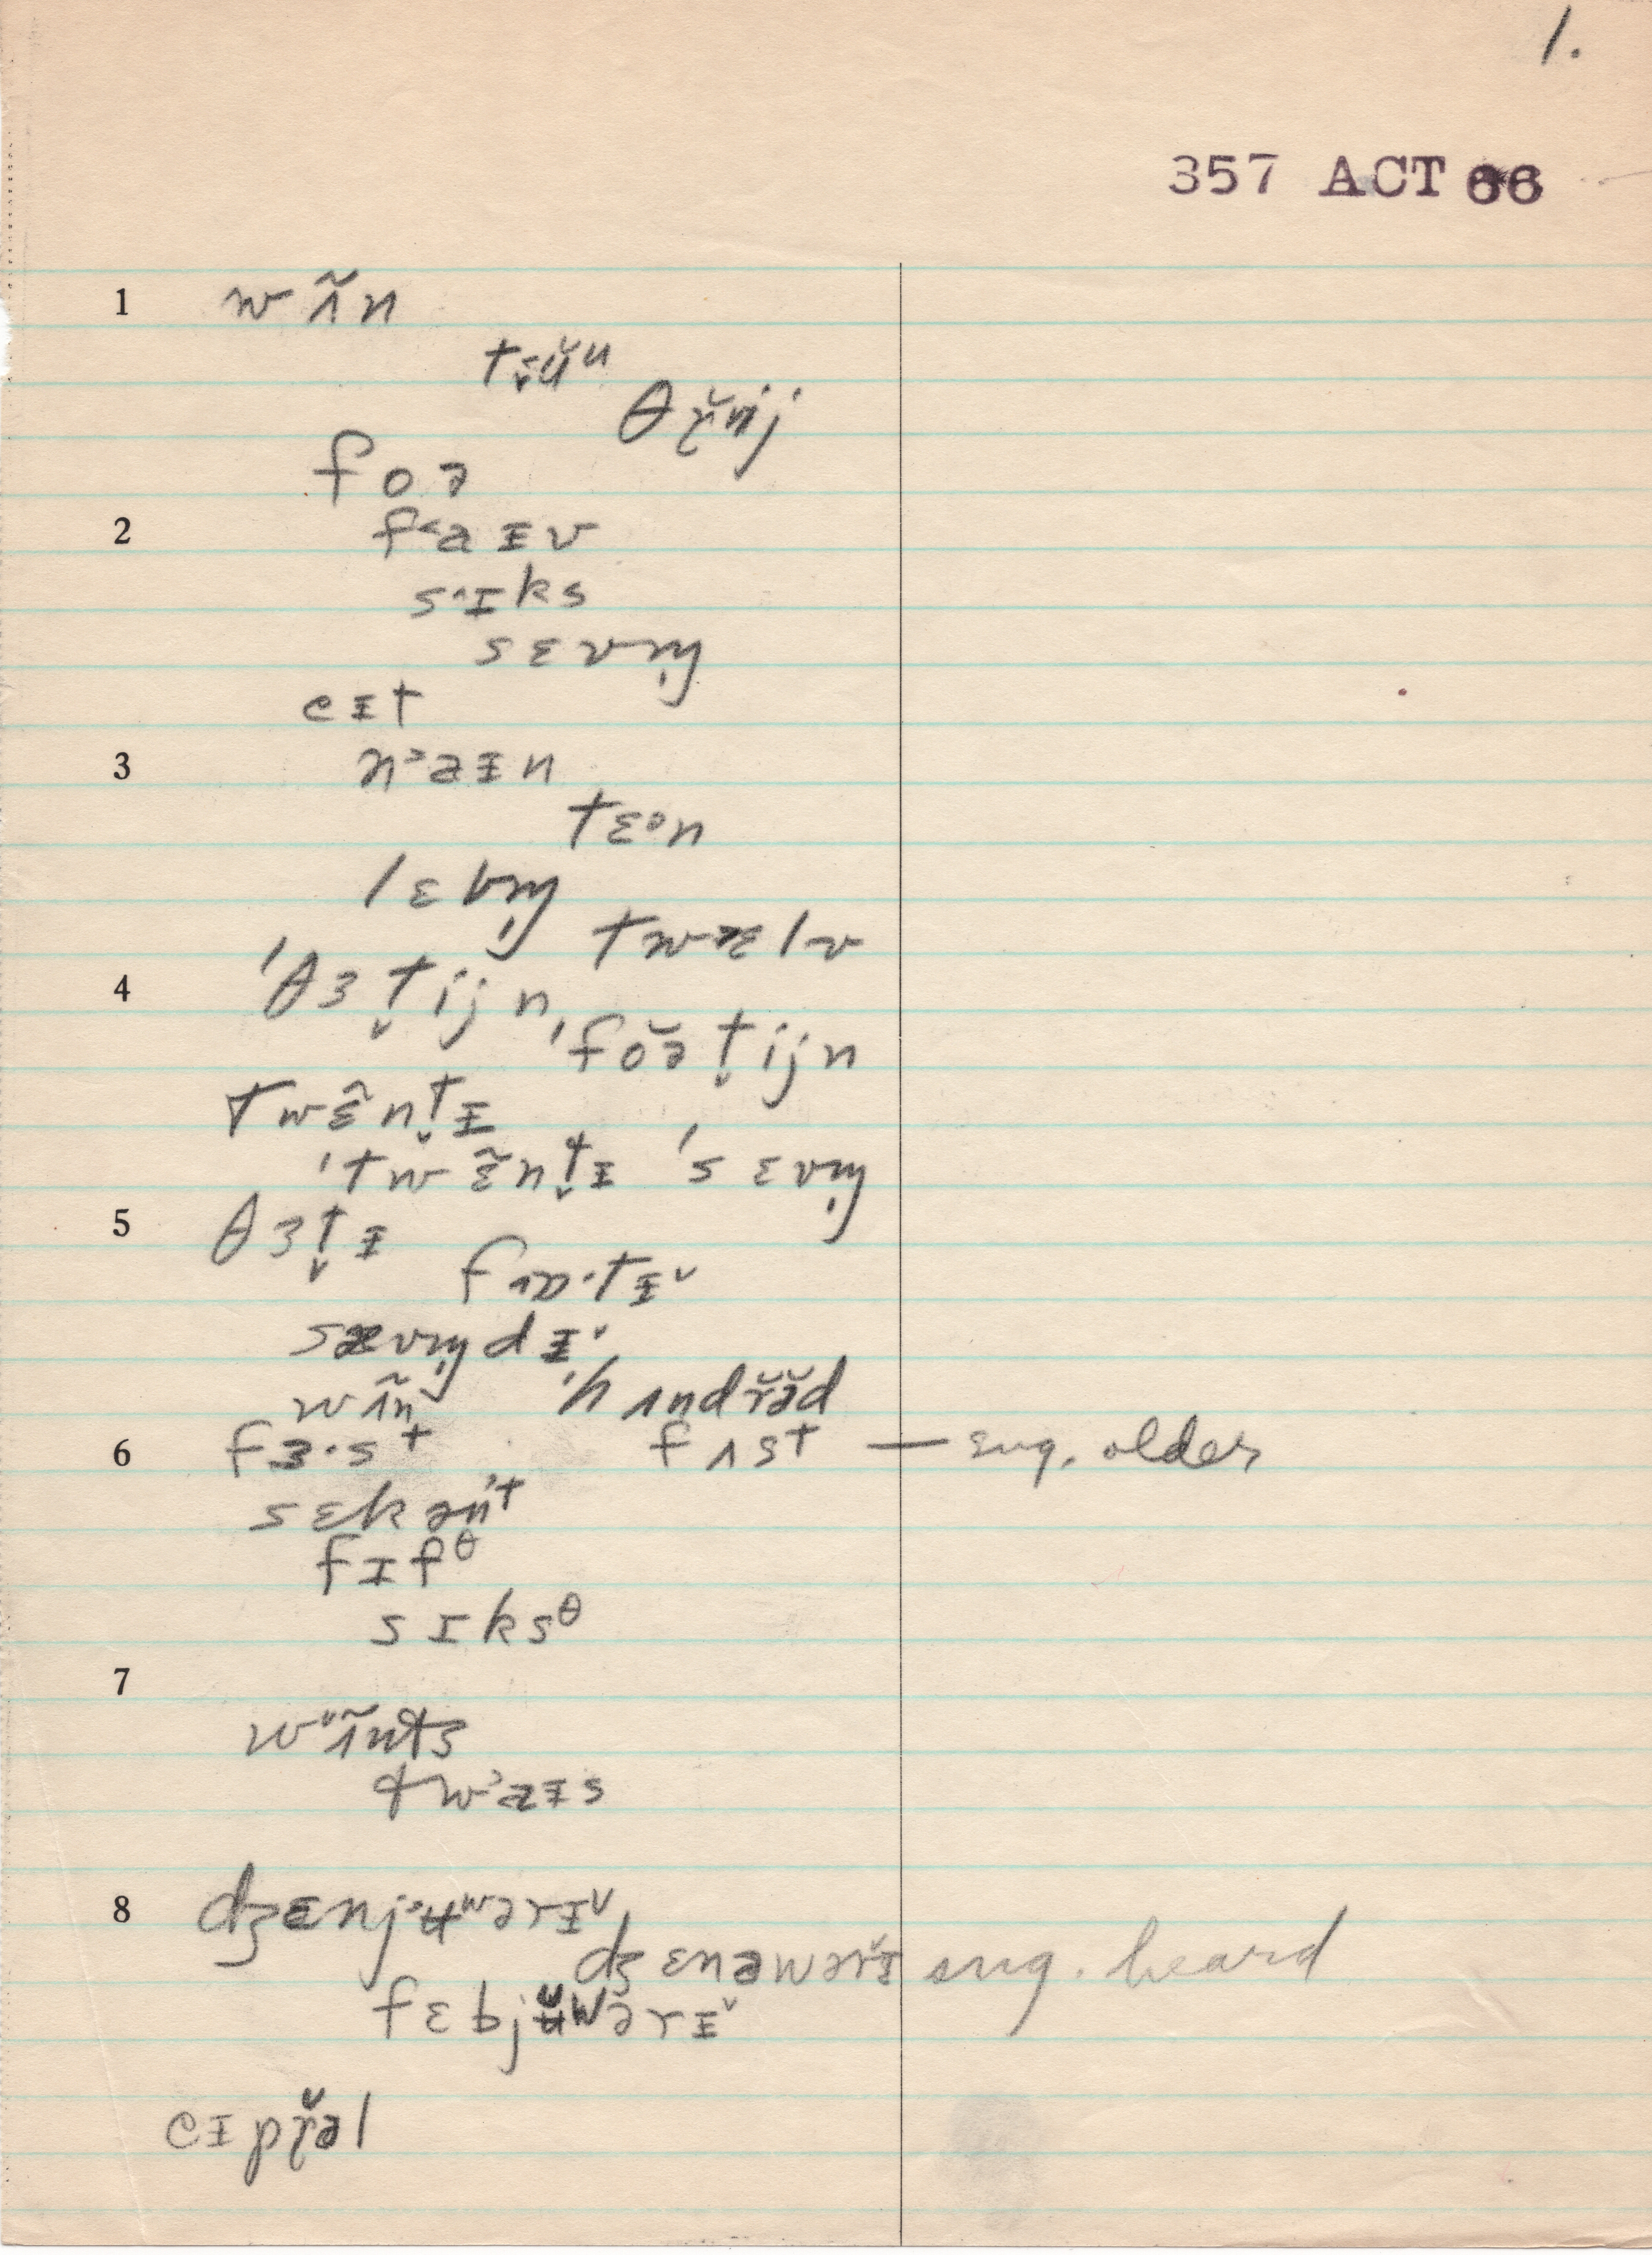 1.
357 ACT 66
1 wʌ̃n
t̬ʉ̆ᵘ
θɽ̆ij
foə
2 f˂aɪv
s˄ɪks
sɛvm̩
eɪt
3 n˃aɪn
tɛᵊn
lɛbm̩
twɛlv
4 ˈθɜt̬ijn, ˈfŏət̬ijn
twɛ̃nt̬ɪ
ˈtwɛ̃nt̬ɪ ˈsɛvm̩
5 θɜt̬ɪ
sævm̩dɪ˅
wʌ̃n ˈhʌndr̆ə̆d
6 fɜ·st fʌst — sug. older
sɛkənʼt
fɪfᶿ
sɪksᶿ
7
w˅ʌ̃nts
tw˃aɪs
8 dʒɛnj˃ʉʷərɪ˅
dʒɛnəwərɪ̆ sug. heard
fɛbjʉ̆wərɪ˅
eɪpɽ̆əl